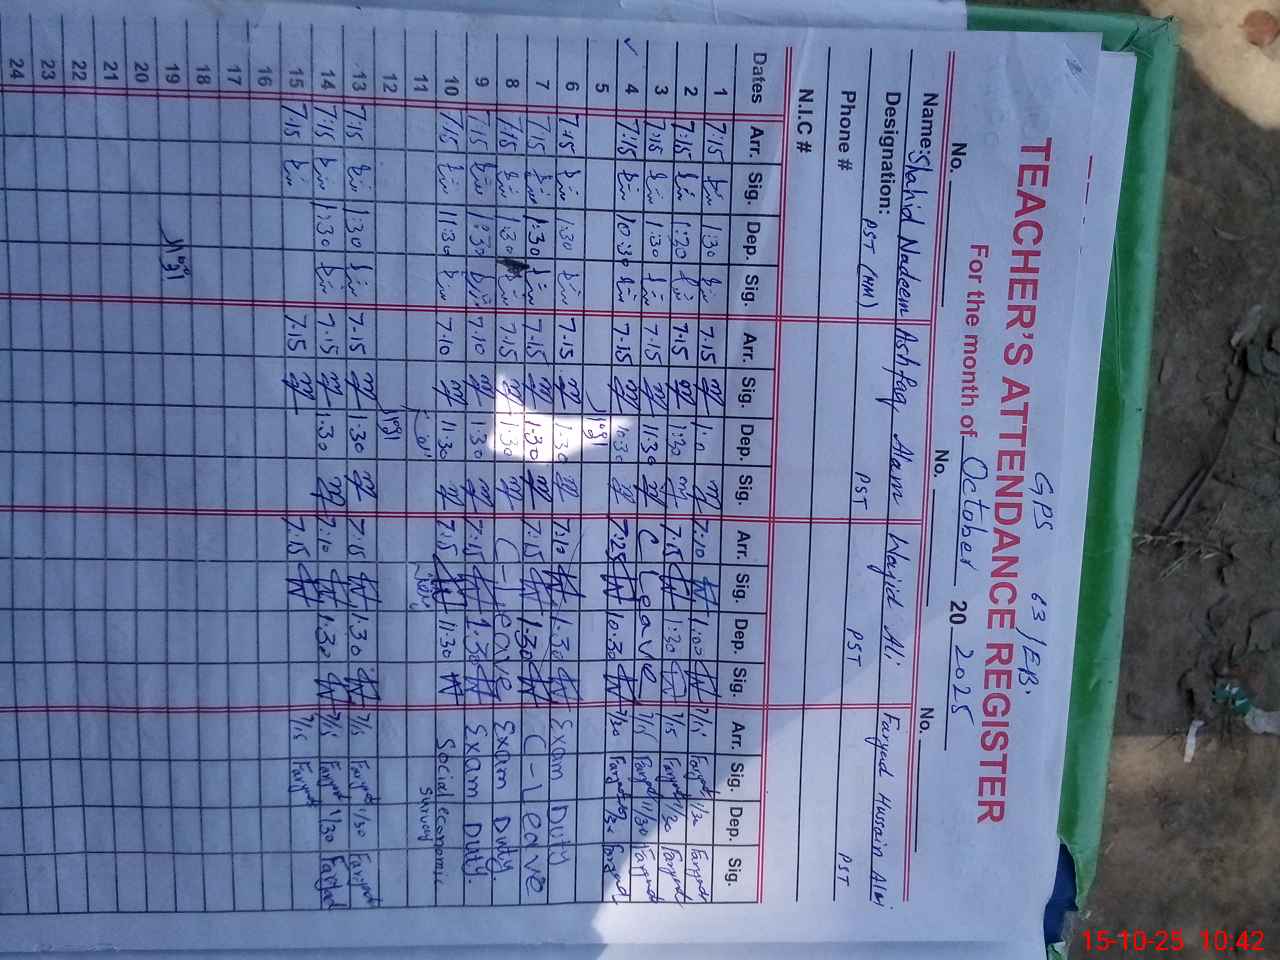 GPS 63/EB.
TEACHER'S ATTENDANCE REGISTER
For the month of October 20 2025
No. No. No.
Name: Shahid Nadeem Ashfaq Alam Wajid Ali Faryad Husain Alvi
Designation: PST (HM) PST PST PST
Phone #
N.I.C #
Dates Arr. Sig. Dep. Sig. Arr. Sig. Dep. Sig. Arr. Sig. Dep. Sig. Arr. Sig. Dep. Sig.
1 7:15 1:30 7.15 7:10 1:00 7/15 Faryad 1/30 Faryad
2 7:15 1:20 7.15 1:30 7.15 1:30 7/15 Faryad 1/30 Faryad
3 7:15 1:30 7.15 11:30 C Leave 7/15 Faryad 1/30 Faryad
4 7:15 10:30 7.15 10:30 7:25 10:30 7/20 Faryad Faryad
5 اتوار
6 7:15 1:30 7.15 1:30 7:10 1:30 Exam Duty
7 7:15 1:30 7.15 1:30 7:15 1:30 C-Leave
8 7:15 1:30 7.15 11:30 C-Leave Exam Duty.
9 7:15 1:30 7.10 1:30 7:15 1:30 Exam Duty.
10 7:15 11:30 7.10 11:30 7:15 11:30 Social economic
11 Survay
12 اتوار
13 7:15 1:30 7.15 1:30 7:15 1:30 7/15 Faryad 1/30 Faryad
14 7:15 1:30 7.15 1:30 7:10 1:30 7/15 Faryad 1/30 Faryad
15 7:15 7.15 7:15 7/15 Faryad
16
17
18
19 اتوار
20
21
22
23
24
15-10-25 10:42